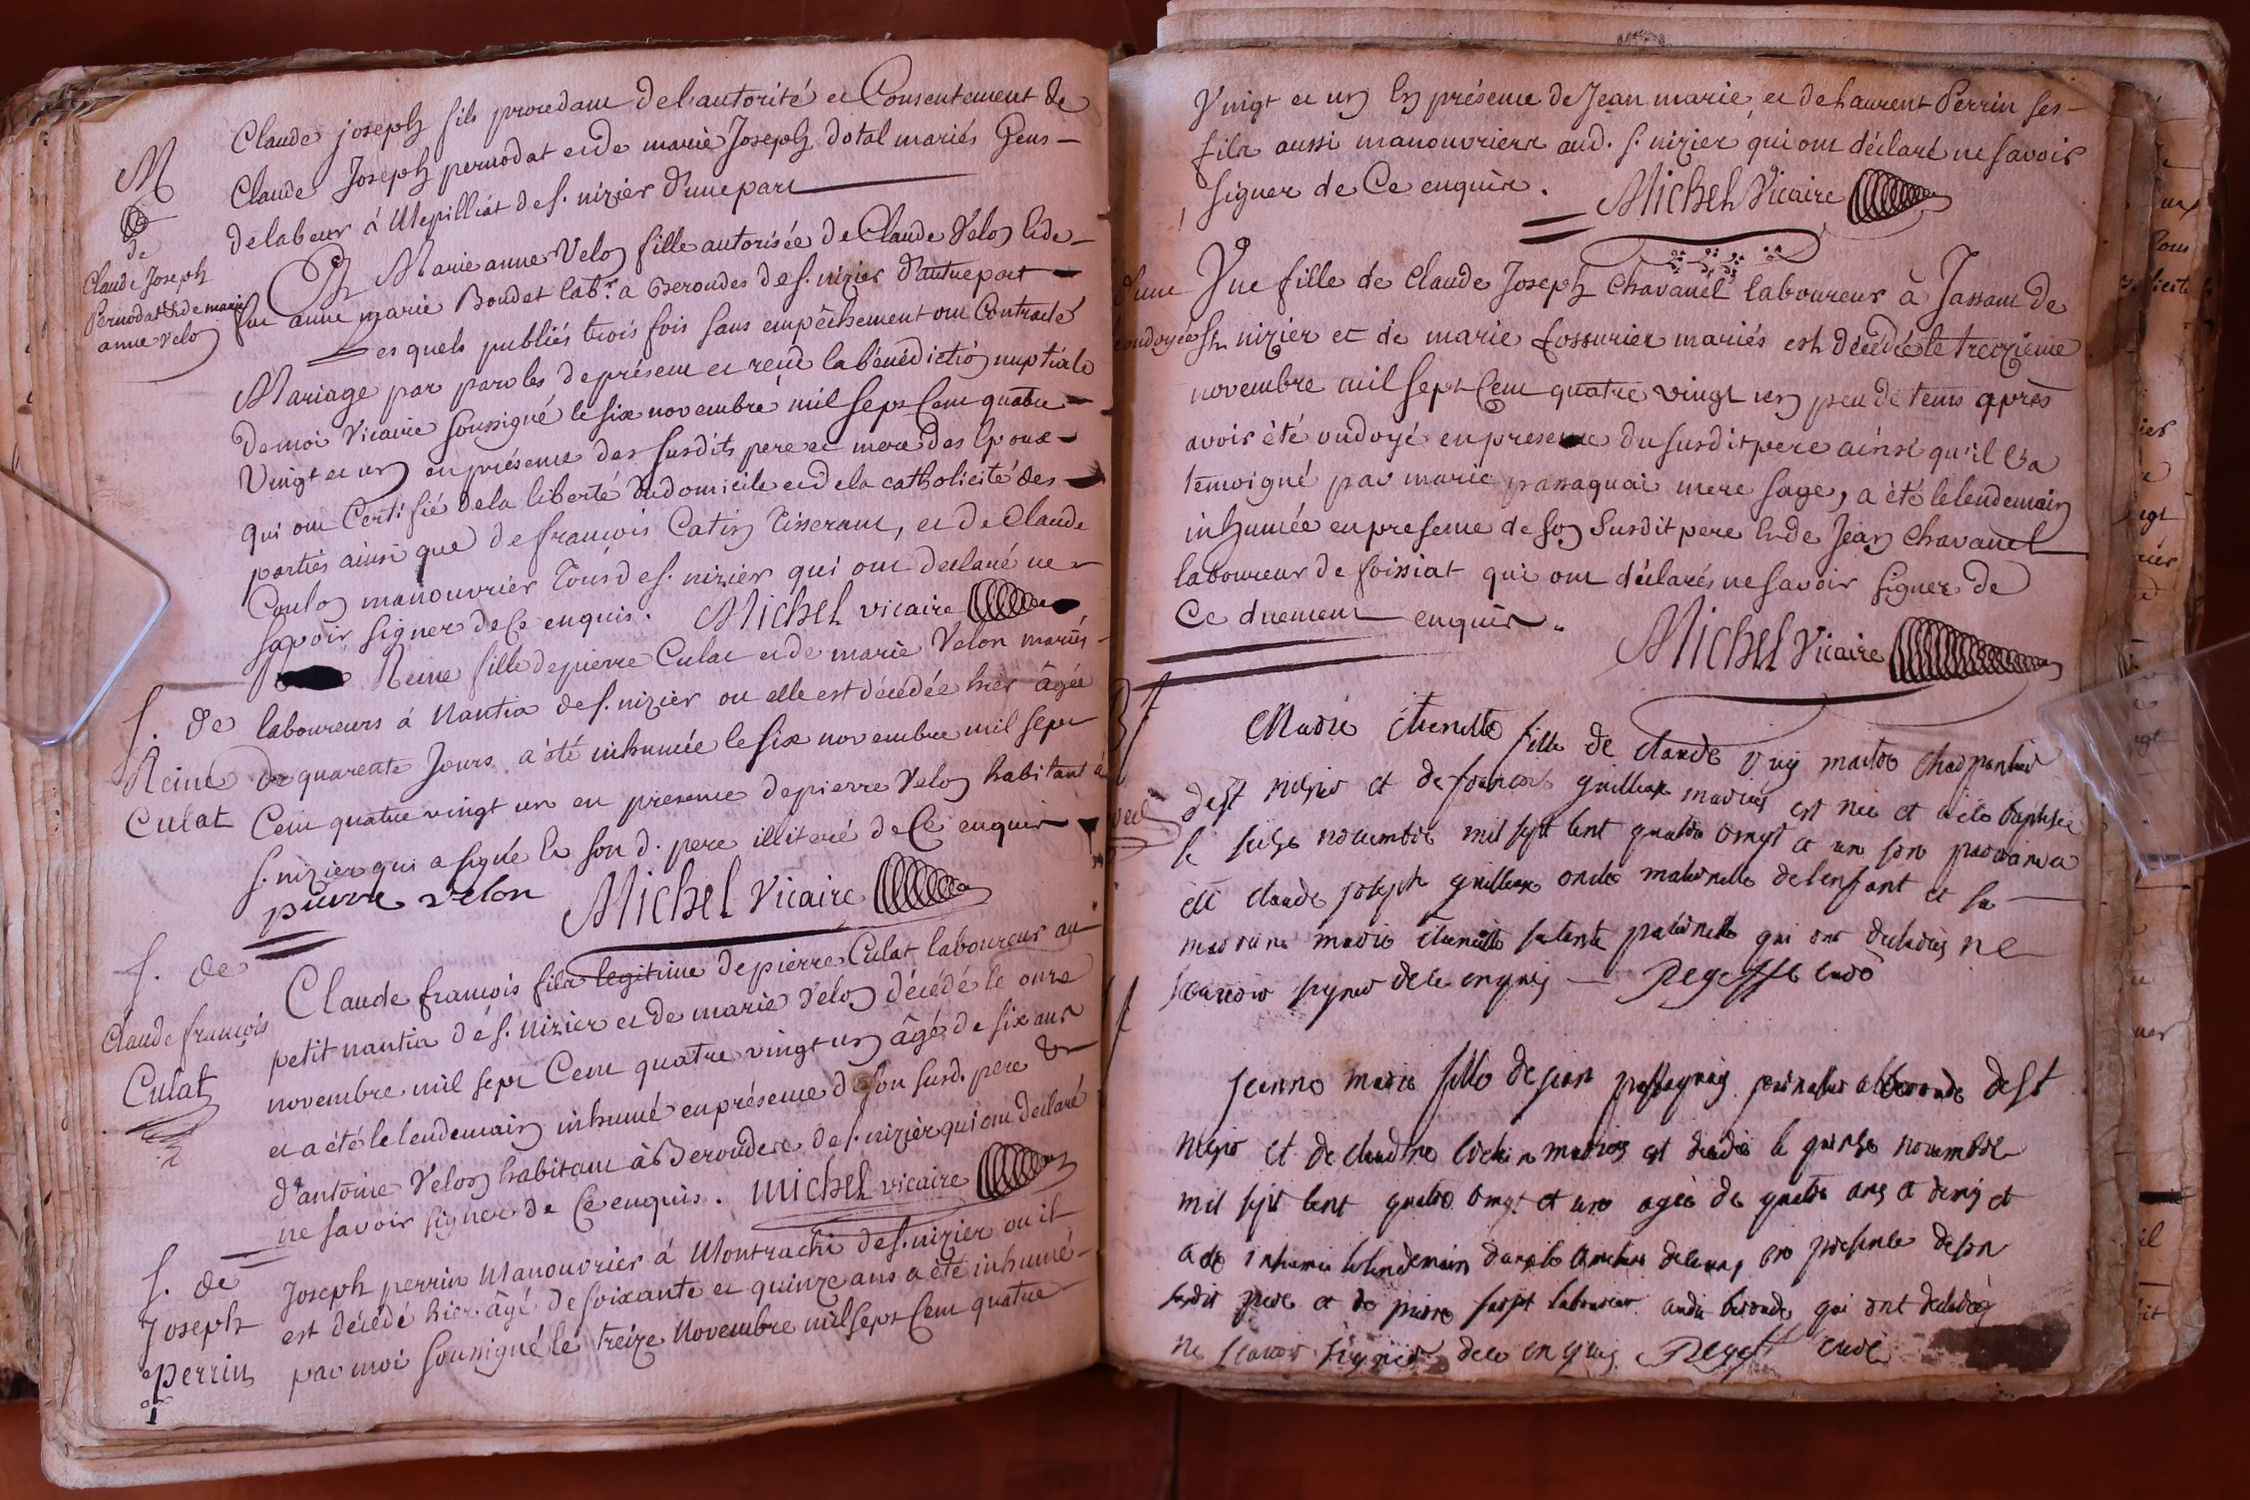 M
de
Claude Joseph
Pernodat & de marie
anne velon
Claude joseph fils procedant de l'autorité et Consentement de
Claude Joseph pernodat et de marie Joseph dotal mariés Gens –
de labeur á Uepilliat de s. nizier d'une part
Et Marie anne Velon fille autorisée de Claude Velon & de –
fut anne marie Boudet labr. a Beroudes de s. nizier d'autre part –
Les quels publiés trois fois sans empêchement ont Contracté
Mariage par paroles de présent et reçu la bénédiction nuptiale
de moi Vicaire soussigné le six novembre mil sept Cent quatre –
Vingt et un en présence des susdits pere et mere des Epoux –
qui ont Certifié de la liberté du domicile et de la catholicité des –
parties ainsi que de françois Catin Tisserant, et de Claude
Coulon manouvrier Tous de s. nizier qui ont declaré ne –
sçavoir signer de Ce enquis. Michel vicaire
s. de
Reine
Culat
Reine fille de pierre Culat et de marie Velon mariés –
laboureurs á Nantia de s. nizier ou elle est décédée hier âgée
de quarente Jours a été inhumée le six novembre mil sept
Cent quatre vingt un en presence de pierre Velon habitant à
s. nizier qui a signé & son d. pere illiteré de Ce enquis
pierre velon Michel Vicaire
s. de
Claude françois
Culat
Claude françois fils legitime de pierre Culat laboureur au
petit nantia de s. nizier et de marie Velon décédé le onze
novembre mil sept Cent quatre vingt un âgé de six ans
et a été le lendemain inhumé en présence de son susd. pere &
d'antoine Velon habitant à Beroudes de s. nizier qui ont declaré
ne savoir signer de Ce enquis. Michel vicaire
s. de
Joseph
perrin
Joseph perrin Manouvrier á Montrachi de s. nizier ou il
est décédé hier âgé de soixante et quinze ans a été inhumé –
par moi soussigné le treize Novembre mil sept Cent quatre
Vingt et un En présence de Jean marie et de Laurent Perrin ses –
fils aussi manouvriers aud. s. nizier qui ont déclaré ne savoir
signer de Ce enquis. Michel Vicaire
d'une
ondoyée
Une fille de Claude Joseph Chavanel laboureur à Jassant de
St nizier et de marie fossurier mariés est décédée le treizieme
novembre mil sept Cent quatre vingt un peu de tems après
avoir été ondoyé en presence du susdit pere ainsi qu'il l'a
temoigné par marie passaquai mere sage, a été le lendemain
inhumée en presence de son Susdit pere & de Jean Chavanel
laboureur de foissiat qui ont déclarés ne savoir signer de
Ce duement enquis.
Michel Vicaire
Marie thenette fille de claude maitre charpentier
de st nizier et de françoise guilleux mariés est née et a été baptisée
le seise novembre mil sept cent quatre vingt et un son parrain a
été claude joseph guilleux oncle maternelle de lenfant et sa
marraine marie thenette sa tante paternelle qui ont declarés ne
scavoir signer de ce enquis — Regeffe curé
jeanne marie fille de jean passaquay a beroude de st
nizier et de claudine mariés est decedée le quinse novembre
mil sept cent quatre vingt et un agée de quatre ans et demy et
a eté inhumée le lendemain dans le cimetiere de ceans en presence de son
susdit pere et de pierre laboureur audit beroude qui ont declarés
ne scavoir signer de ce enquis Regeffe curé